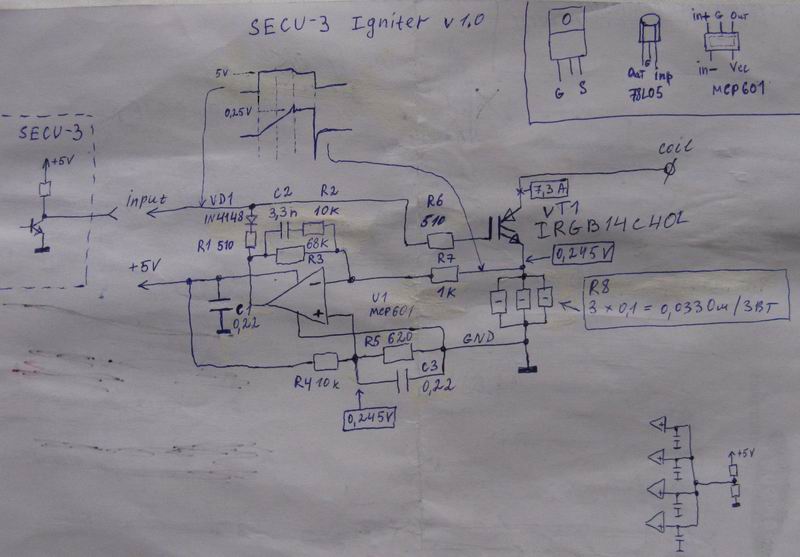 SECU-3 Igniter v 1.0
5V
0,25V
SECU-3
+5V
input
VD1
1N4148
C2
3,3n
R2
10K
R1 510
68K
R3
+5V
C1
0,22
U1
MCP601
R6
510
R7
1K
VT1
IRGB14C40L
7,3A
coil
0,245V
R8
3 x 0,1 = 0,033 Ом / 3ВТ
R5 620
C3
0,22
GND
R4 10k
0,245V
G S
Out G inp
78L05
int G Out
in- Vcc
MCP601
+5V